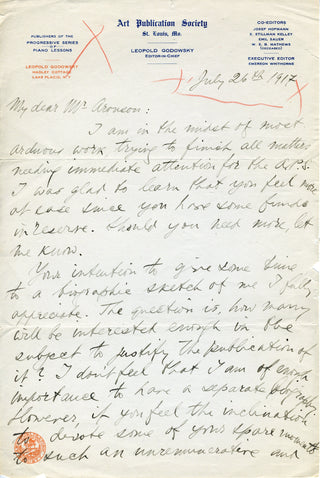 Art Publication Society
St. Louis, Mo.
LEOPOLD GODOWSKY
EDITOR-IN-CHIEF
PUBLISHERS OF THE
PROGRESSIVE SERIES
OF
PIANO LESSONS
LEOPOLD GODOWSKY
HADLEY COTTAGE
LAKE PLACID, N.Y.
CO-EDITORS
JOSEF HOFMANN
E. STILLMAN KELLEY
EMIL SAUER
W. S. B. MATHEWS
(DECEASED)
EXECUTIVE EDITOR
EMERSON WHITHORNE
July 26th 1917
My dear Mr Aronson:
I am in the midst of most
arduous work, trying to finish all matters
needing immediate attention for the A.P.S.
I was glad to learn that you feel more
at ease since you have some funds
in reserve. Should you need more, let
me know.
Your intention to give some time
to a biographic sketch of me I fully
appreciate. The question is, how many
will be interested enough in the
subject to justify the publication of
it? I don't feel that I am of enough
importance to have a separate biography.
However, if you feel the inclination
to devote some of your spare moments
to such an unremunerative and